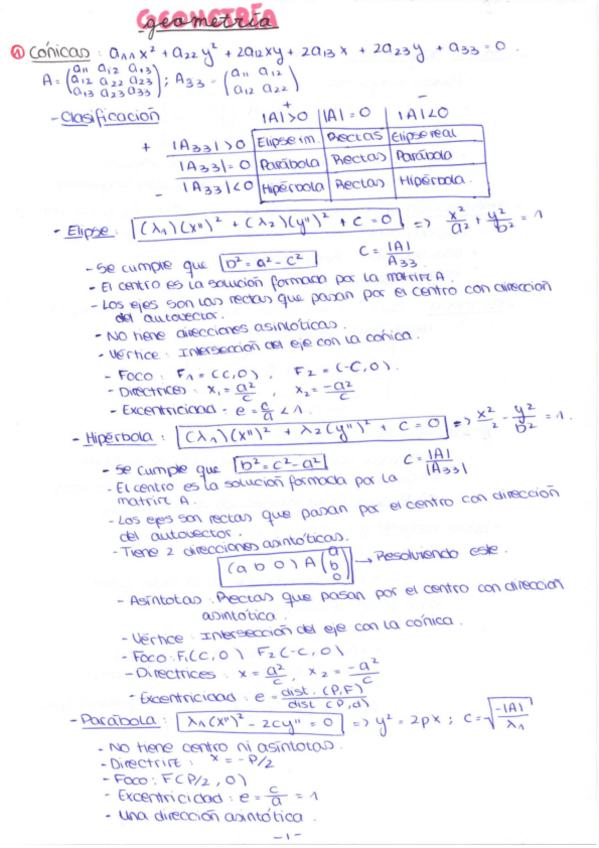 GEOMETRÍA
geometría
① Cónicas: a₁₁x² + a₂₂y² + 2a₁₂xy + 2a₁₃x + 2a₂₃y + a₃₃ = 0.
A = (a₁₁ a₁₂ a₁₃ / a₁₂ a₂₂ a₂₃ / a₁₃ a₂₃ a₃₃); A₃₃ = (a₁₁ a₁₂ / a₁₂ a₂₂)
+ −
- Clasificación |A|>0 |A|=0 |A|<0
+ |A₃₃|>0 Elipse im. Rectas Elipse real
|A₃₃|=0 Parábola Rectas Parábola
- |A₃₃|<0 Hipérbola Rectas Hipérbola.
- Elipse: (λ₁)(x'')² + (λ₂)(y'')² + c = 0 => x²/a² + y²/b² = 1
- Se cumple que b² = a² - c² C = |A|/A₃₃
- El centro es la solución formada por la matriz A.
- Los ejes son las rectas que pasan por el centro con dirección
del autovector.
- No tiene direcciones asintóticas.
- Vértice: Intersección del eje con la cónica.
- Foco: F₁ = (c,0), F₂ = (-c,0).
- Directrices: x₁ = a²/c, x₂ = -a²/c
- Excentricidad - e = c/a < 1.
- Hipérbola: (λ₁)(x'')² + λ₂(y'')² + c = 0 => x²/² - y²/b² = 1.
- Se cumple que b² = c² - a² C = |A|/|A₃₃|
- El centro es la solución formada por la
matriz A.
- Los ejes son rectas que pasan por el centro con dirección
del autovector.
- Tiene 2 direcciones asintóticas.
(a b 0) A (a / b / 0) → Resolviendo este.
- Asíntotas: Rectas que pasan por el centro con dirección
asintótica.
- Vértice: Intersección del eje con la cónica.
- Foco: F₁(c,0) F₂(-c,0)
- Directrices: x = a²/c, x₂ = -a²/c
- Excentricidad: e = dist. (P,F)/dist (P,d)
- Parábola: λ₁(x'')² - 2cy'' = 0 => y² = 2px; c = √(-|A|/λ₁)
- No tiene centro ni asíntotas.
- Directriz: x = -P/2
- Foco: F(P/2, 0)
- Excentricidad: e = c/a = 1
- Una dirección asintótica.
-1-